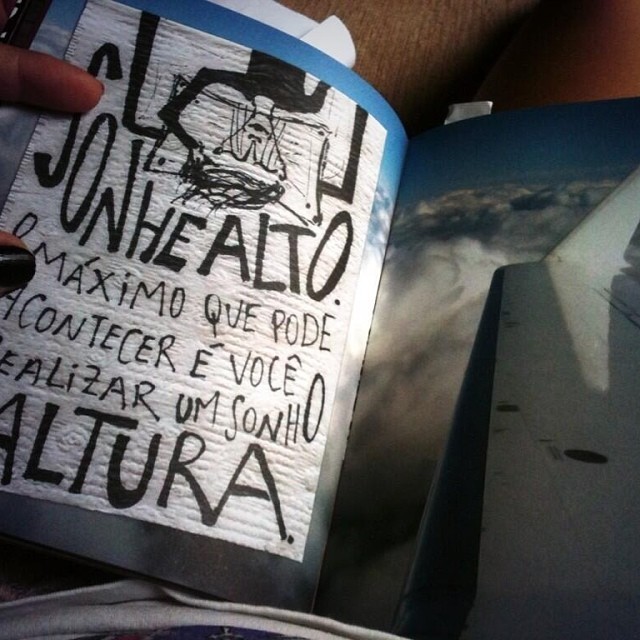 SONHE ALTO.
O MÁXIMO QUE PODE
ACONTECER É VOCÊ
REALIZAR UM SONHO
ALTURA.